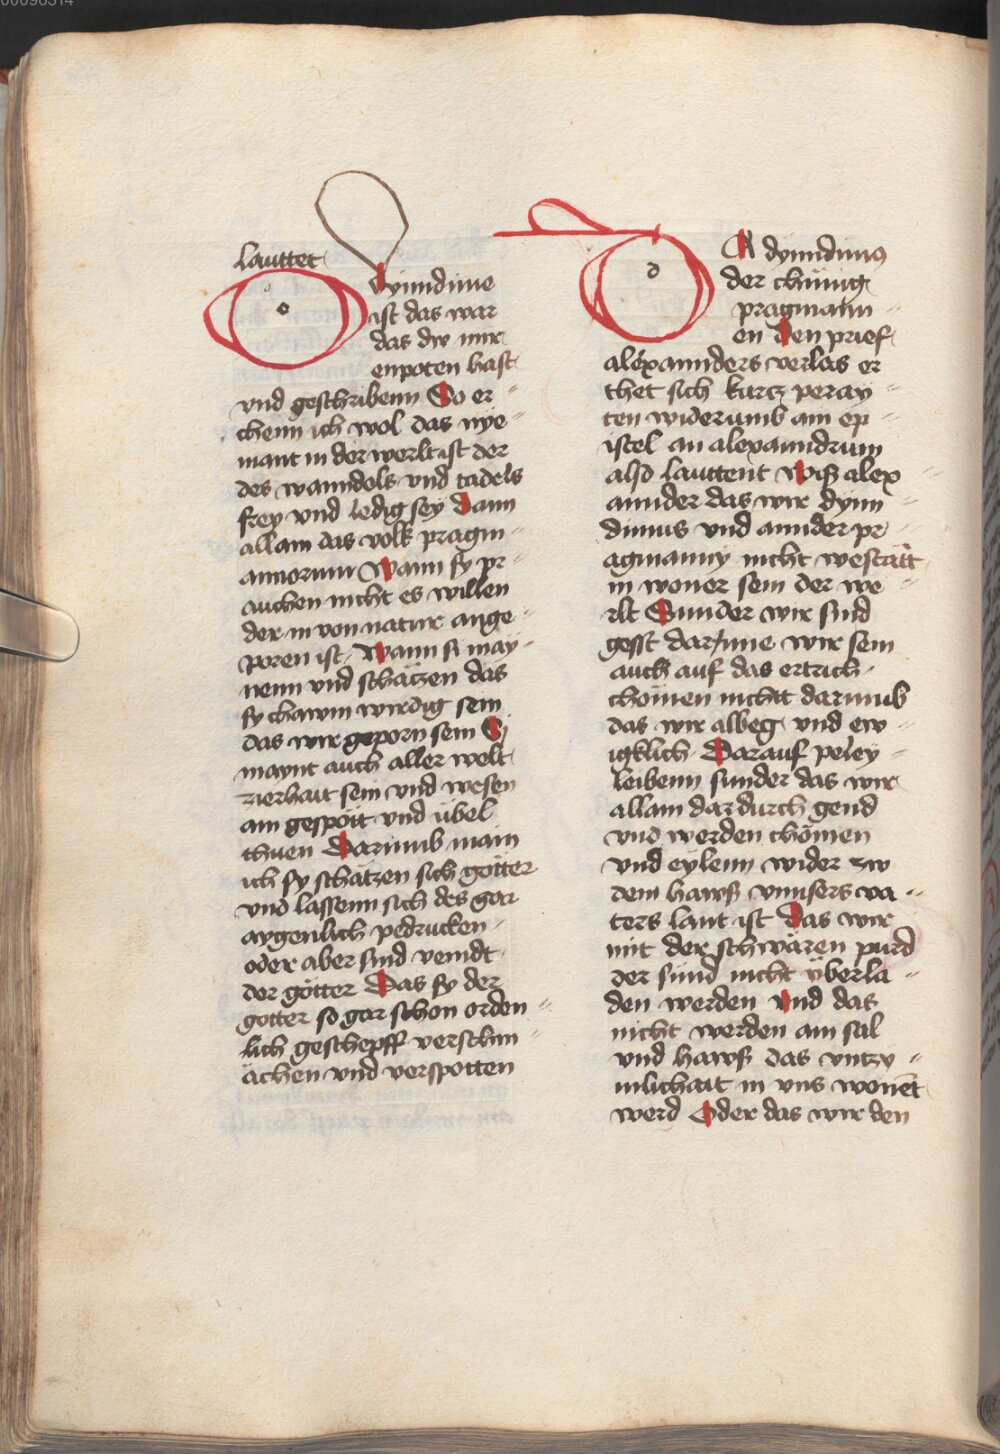 lauttet
O Dyindime
ist das war
das dw mir
enpoten hast
vnd geschribenn So er
chenn ich wol das nye
mant in der werlt ist der
des wanndels vnd tadels
frey vnd ledig sey Dann
allain das volk pragm
annorum Wann sy pr
auchen nicht es willen
der in von natur ange
poren ist Wann si may
nenn vnd schätzen das
sy chawm wirdig sein
das wir geporn sein Si
maynt auch aller welt
zierhait sein vnd wesen
ain gespött vnd übel
thuen Darumb main
ich sy schätzen sich götter
vnd lassenn sich des gar
aygenlich pedrucken
oder aber sind veindt
der götter Das sy der
götter so gar schon orden
lich geschepff verschm
ächen vnd verspotten
DA dyindimus
der chünig
pragmann
en Den prief
alexannders verlas er
thet sich kurcz peray
ten widerumb ain ep
istel an alexanndrum
also lauttent Wiß alex
annder das wir dyin
dimus vnd annder pr
agmanny nicht westätt
in woner sein der we
rlt Sunder wir sind
gesst darjnne wir sein
auch auf das ertrich
chömen nicht darumb
das wir albeg vnd ew
igklich Darauf peley
leibenn sunder das wir
allain da durch gend
vnd werden chömen
vnd eylenn wider zw
dem hawß vnnsers va
ters lant ist Das wir
mit der schwären purd
der sünd nicht überla
den werden Vnd das
nicht werden ain sal
vnd hawß das vntzy
mlichait in vns wonet
werd Oder das wir den